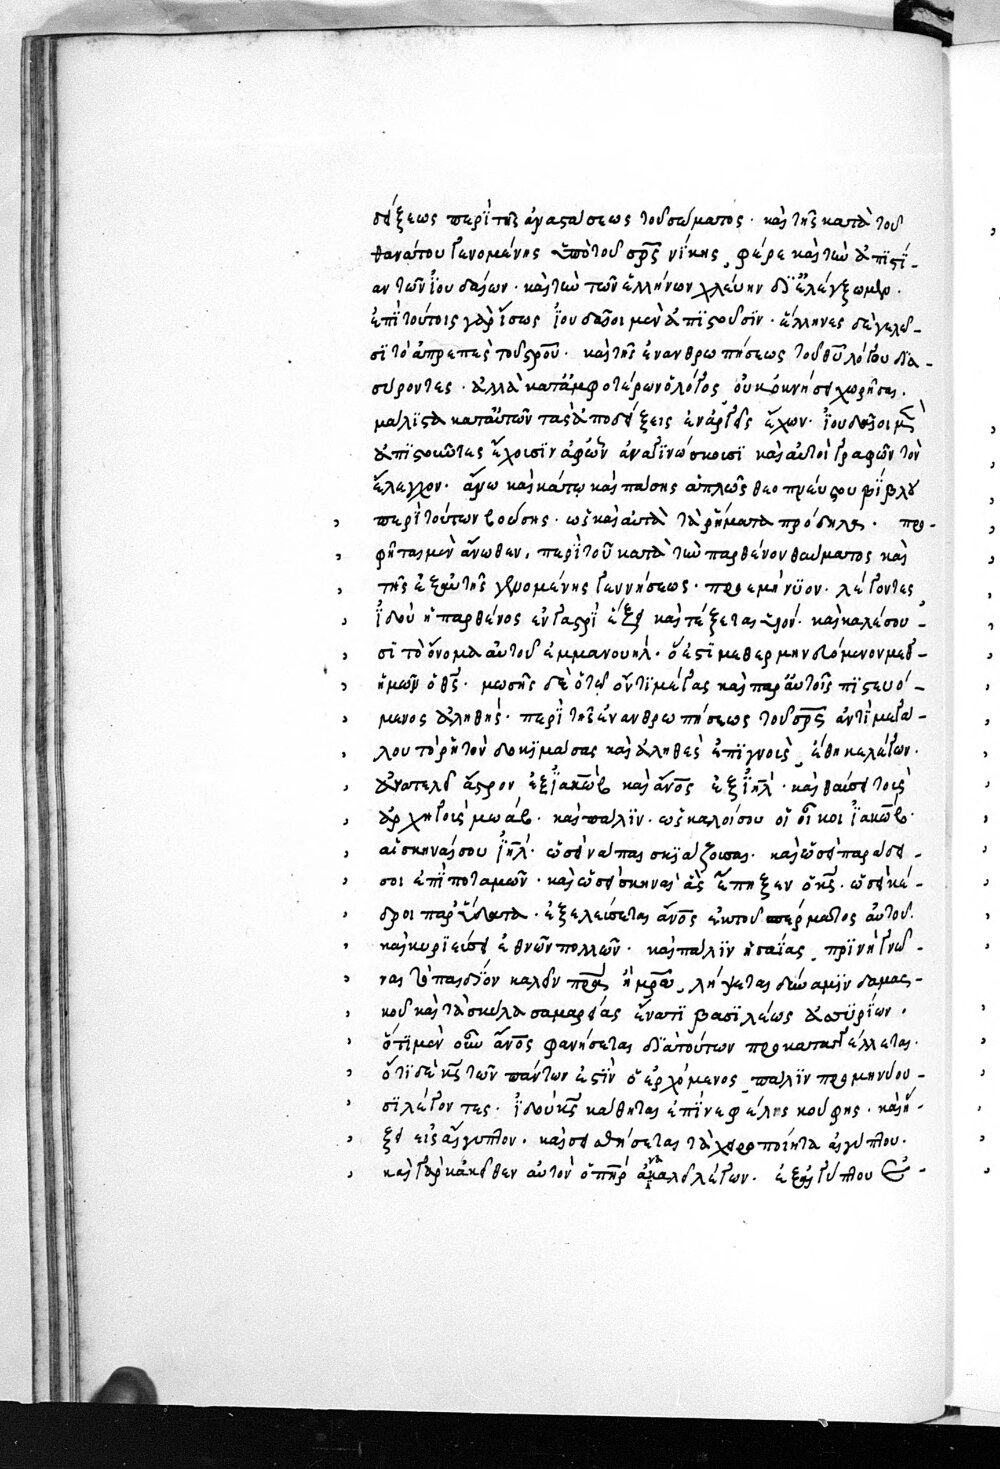 δείξεως περὶ τῆς ἀναστάσεως τοῦ σώματος · καὶ τῆς κατὰ τοῦ
θανάτου γενομένης ὑπὸ τοῦ σρ̅ς νίκης, φέρε καὶ τὴν ἀπιστί-
αν τῶν ἰουδαίων · καὶ τὴν τῶν ἑλλήνων χλεύην διελέγξωμεν ·
ἐπὶ τούτοις γὰρ ἴσως ἰουδαῖοι μὲν ἀπιστοῦσιν · ἕλληνες δὲ γελῶ-
σι τὸ ἀπρεπὲς τοῦ σρ̅οῦ · καὶ τῆς ἐνανθρωπήσεως τοῦ θ̅υ λόγου δια-
σύροντες · ἀλλὰ κατ' ἀμφοτέρων ὁ λόγος οὐκ ὀκνήσει χωρῆσαι ·
μάλιστα κατ' αὐτῶν τὰς ἀποδείξεις ἐναργεῖς ἔχων · ἰουδαῖοι μὲν
ἀπιστοῦντες ἔχοισιν ἀφ' ὧν ἀναγινώσκοισι καὶ αὐτοὶ γραφῶν τὸν
ἔλεγχον · ἄνω καὶ κάτω καὶ πάσης ἁπλῶς θεοπνεύστου βίβλου
περὶ τούτων βοώσης · ὡς καὶ αὐτὰ τὰ ῥήματα πρόδηλα · προ-
φῆται μὲν ἄνωθεν, περὶ τοῦ κατὰ τὴν παρθένον θαύματος καὶ
τῆς ἐξ αὐτῆς γενομένης γεννήσεως · προεμήνυον · λέγοντες,
ἰδοὺ ἡ παρθένος ἐν γαστρὶ ἕξει καὶ τέξεται υἱόν · καὶ καλέσου-
σι τὸ ὄνομα αὐτοῦ ἐμμανουήλ · ὅ ἐστι μεθερμηνευόμενον μεθ-
ἡμῶν ὁ θ̅ς · μωσῆς δὲ ὁ τῷ ὄντι μέγας καὶ παρ' αὐτοῖς πιστευό-
μενος ἀληθής · περὶ τῆς ἐνανθρωπήσεως τοῦ σρ̅ς ἀντὶ μεγά-
λου τὸ ῥητὸν δοκιμάσας καὶ ἀληθὲς ἐπιγνοὺς, ἔθηκε λέγων ·
ἀνατελεῖ ἄστρον ἐξ ἰακὼβ καὶ ἄν̅ος ἐξ ιη̅λ · καὶ θαύσει τοὺς
ἀρχηγοὺς μωάβ · καὶ πάλιν · ὡς καλοί σου οἱ οἶκοι ἰακώβ ·
αἱ σκηναί σου ιη̅λ · ὡσεὶ νάπαι σκιάζουσαι · καὶ ὡσεὶ παράδει-
σοι ἐπὶ ποταμῶν · καὶ ὡσεὶ σκηναὶ ἃς ἔπηξεν ὁ κ̅ς · ὡσεὶ κέ-
δροι παρ' ὕδατα · ἐξελεύσεται ἄν̅ος ἐκ τοῦ σπέρματος αὐτοῦ
καὶ κυριεύσει ἐθνῶν πολλῶν · καὶ πάλιν ἡσαίας, πρὶν ἢ γνῶ-
ναι τὸ παιδίον καλεῖν πρ̅α ἢ μρ̅α, λήψεται δύναμιν δαμασ-
κοῦ καὶ τὰ σκῦλα σαμαρείας ἔναντι βασιλέως ἀσσυρίων ·
ὅτι μὲν οὖν ἄν̅ος φανήσεται διὰ τούτων προκαταγγέλλεται ·
ὅτι δὲ κ̅ς τῶν πάντων ἐστὶν ὁ ἐρχόμενος, πάλιν προμηνύου-
σι λέγοντες · ἰδοὺ κ̅ς κάθηται ἐπὶ νεφέλης κούφης · καὶ ἥ-
ξει εἰς αἴγυπτον · καὶ σεισθήσεται τὰ χειροποίητα αἰγύπτου ·
καὶ γὰρ κἀκεῖθεν αὐτὸν ὁ π̅ηρ ἀνακαλεῖ λέγων · ἐξ αἰγύπτου ἐ-